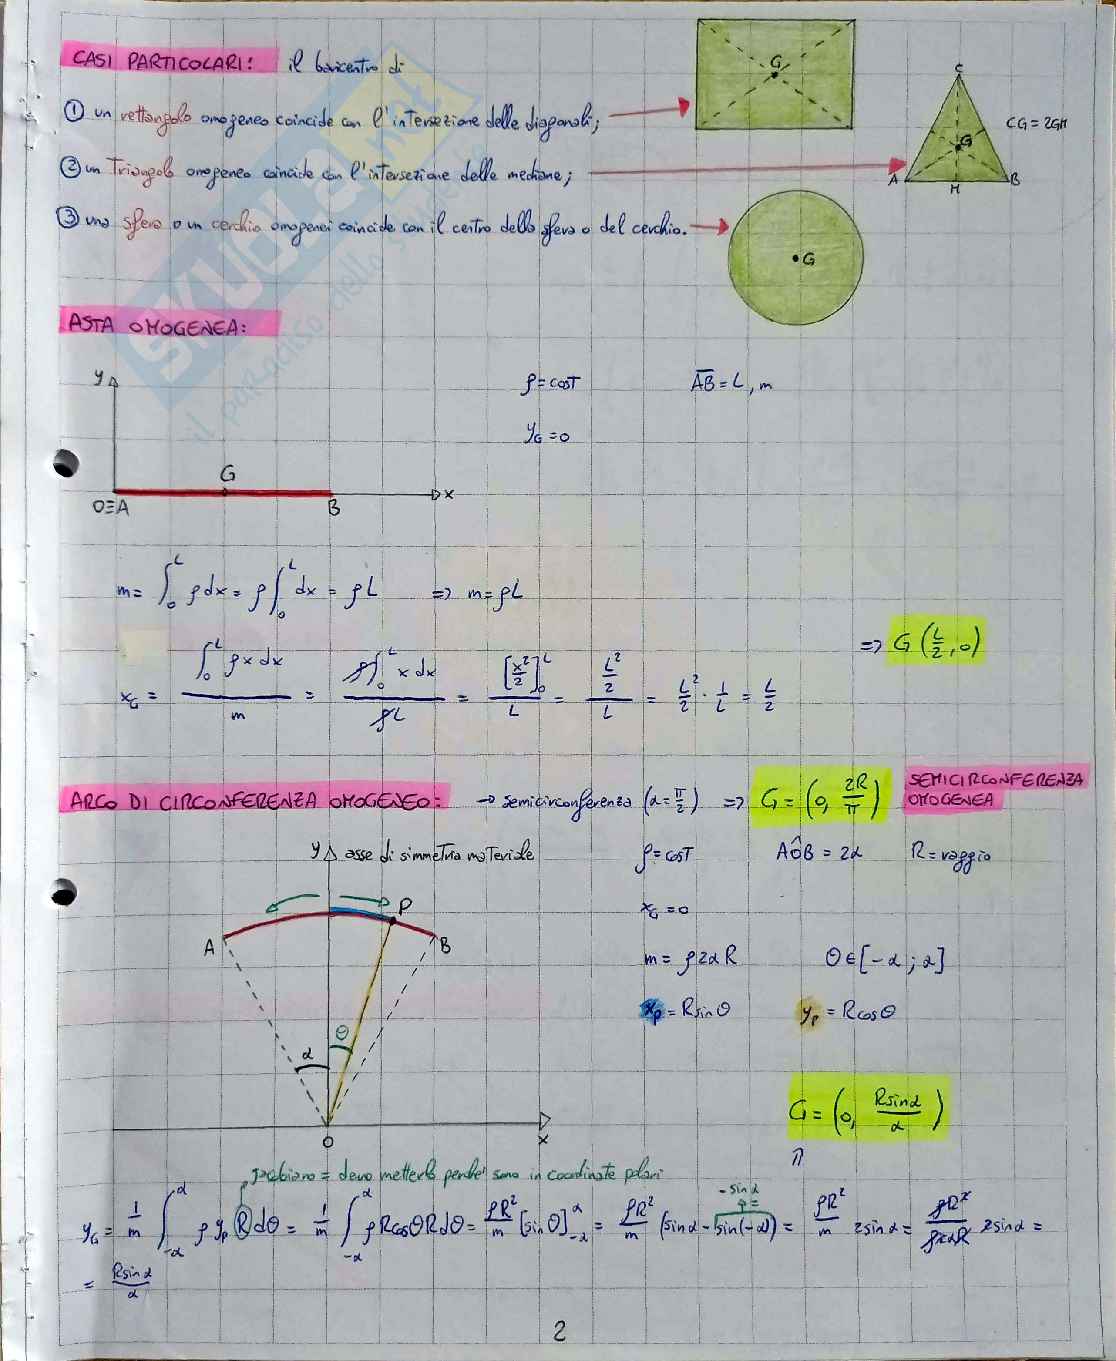 CASI PARTICOLARI: il baricentro di
① un rettangolo omogeneo coincide con l'intersezione delle diagonali;
② un triangolo omogeneo coincide con l'intersezione delle mediane;
③ una sfera o un cerchio omogenei coincide con il centro della sfera o del cerchio.
G
C
G
CG = 2GM
A M B
G
SKUOLA.net
il paradiso dello
ASTA OMOGENEA:
y
ρ = cost
AB = L, m
y_G = 0
G
O≡A B x
m = ∫₀ᴸ ρ dx = ρ ∫₀ᴸ dx = ρL => m = ρL
x_G = ∫₀ᴸ ρ x dx / m = ρ ∫₀ᴸ x dx / ρL = [x²/2]₀ᴸ / L = (L²/2) / L = L²/2 · 1/L = L/2
=> G (L/2, 0)
ARCO DI CIRCONFERENZA OMOGENEO: → semicirconferenza (α = π/2) => G = (0, 2R/π)
SEMICIRCONFERENZA
OMOGENEA
y asse di simmetria materiale
ρ = cost AÔB = 2α R = raggio
P
x_G = 0
A B
m = ρ2αR θ ∈ [-α ; α]
x_P = R sinθ y_P = R cosθ
θ
α
G = (0, R sinα / α)
O x
Jacobiano = devo metterlo perché sono in coordinate polari
y_G = 1/m ∫_{-α}^{α} ρ y_P R dθ = 1/m ∫_{-α}^{α} ρ R cosθ R dθ = ρR²/m [sinθ]_{-α}^{α} = ρR²/m (sinα - sin(-α)) = ρR²/m 2 sinα = ρR²/ρ2αR 2 sinα =
-sinα
= R sinα / α
2